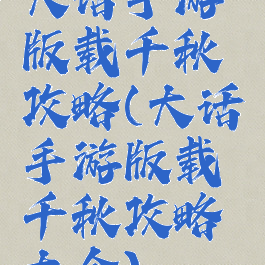 大话手游
版载千秋
攻略(大话
手游版载
千秋攻略
大全)